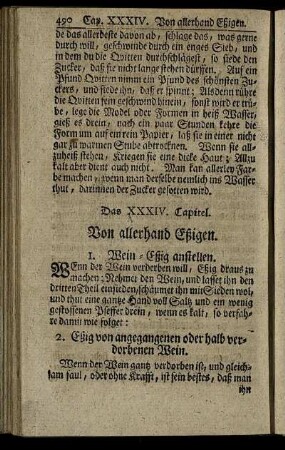 490 Cap. XXXIV. Von allerhand Eßigen.
de das allerbeste davon ab, schlage das, was gerne
durch will, geschwinde durch ein enges Sieb, und
in dem du die Qvitten durchschlägest, so siede den
Zucker, daß sie nicht lange stehen dürffen. Auf ein
Pfund Qvitten nimm ein Pfund des schönsten Zu-
ckers, und siede ihn, daß er spinnt; Alsdenn rühre
die Qvitten fein geschwind hinein, sonst wird er trü-
be, lege die Model oder Formen in heiß Wasser,
gieß es drein, nach ein paar Stunden kehre die
Form um auf ein rein Papier, laß sie in einer nicht
gar zu warmen Stube abtrocknen. Wenn sie all-
zuheiß stehen, kriegen sie eine dicke Haut; Allzu
kalt aber dient auch nicht. Man kan allerley Far-
be machen, wenn man derselbe nemlich ins Wasser
thut, darinnen der Zucker gesotten wird.
Das XXXIV. Capitel.
Von allerhand Eßigen.
1. Wein-Eßig anstellen.
Wenn der Wein verderben will, Eßig draus zu
machen: Nehmet den Wein, und lasset ihn den
dritten Theil einsieden, schäumet ihn mit Sieden wol,
und thut eine gantze Hand voll Saltz und ein wenig
gestossenen Pfeffer drein, wenn es kalt, so verfah-
re damit wie folget:
2. Eßig von angegangenen oder halb ver-
dorbenen Wein.
Wenn der Wein gantz verdorben ist, und gleich-
sam faul, oder ohne Krafft, ist sein bestes, daß man
ihn